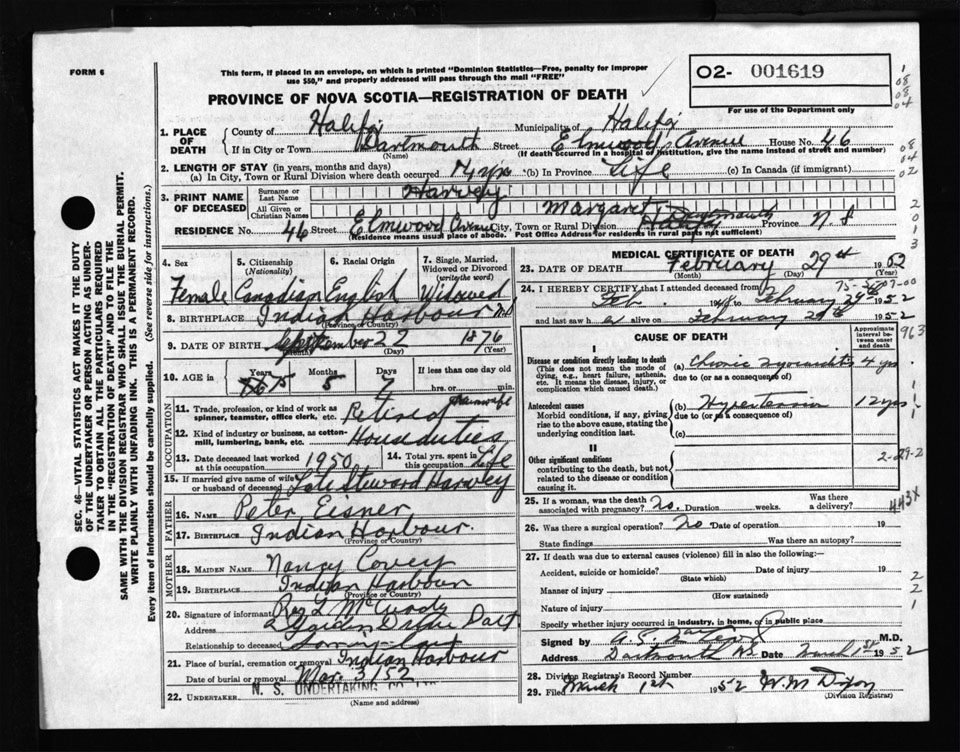 FORM 6
This form, if placed in an envelope, on which is printed "Dominion Statistics—Free, penalty for improper
use $50," and properly addressed will pass through the mail "FREE"
O2- 001619
For use of the Department only
PROVINCE OF NOVA SCOTIA—REGISTRATION OF DEATH
1. PLACE OF DEATH
County of Halifax Municipality of Halifax
If in City or Town Dartmouth Street Elmwood Avenue House No. 46
(Name) (If death occurred in a hospital or institution, give the name instead of street and number)
2. LENGTH OF STAY (in years, months and days)
(a) In City, Town or Rural Division where death occurred 7 yrs (b) In Province Life (c) In Canada (if immigrant)
3. PRINT NAME OF DECEASED
Surname or Last Name Harvey
All Given or Christian Names Margaret
RESIDENCE No. 46 Street Elmwood Avenue City, Town or Rural Division Dartmouth Halifax Province N.S
(Residence means usual place of abode. Post Office Address for residents in rural parts not sufficient)
4. Sex Female
5. Citizenship (Nationality) Canadian
6. Racial Origin English
7. Single, Married, Widowed or Divorced (write the word) Widowed
8. BIRTHPLACE Indian Harbour N.S
(Province or Country)
9. DATE OF BIRTH September 22 1876
(Month) (Day) (Year)
10. AGE in Years 75 Months 5 Days 7 If less than one day old hrs. or min.
OCCUPATION
11. Trade, profession, or kind of work as spinner, teamster, office clerk, etc. Retired
12. Kind of industry or business, as cotton-mill, lumbering, bank, etc. House duties
13. Date deceased last worked at this occupation 1950
14. Total yrs. spent in this occupation Life
15. If married give name of wife or husband of deceased Late Steward Harvey
FATHER
16. NAME Peter Eisner
17. BIRTHPLACE Indian Harbour
(Province or Country)
MOTHER
18. MAIDEN NAME Nancy Covey
19. BIRTHPLACE Indian Harbour
(Province or Country)
20. Signature of informant
Address Dart.
Relationship to deceased
21. Place of burial, cremation or removal Indian Harbour
Date of burial or removal Mar. 3/52
22. UNDERTAKER N. S. UNDERTAKING CO
(Name and address)
MEDICAL CERTIFICATE OF DEATH
23. DATE OF DEATH February 29th 1952
(Month) (Day) (Year)
24. I HEREBY CERTIFY that I attended deceased from
Feb. 1948 to February 29th 1952
and last saw her alive on February 29th 1952
CAUSE OF DEATH
Approximate interval between onset and death
I
Disease or condition directly leading to death
(This does not mean the mode of dying, e.g., heart failure, asthenia, etc. It means the disease, injury, or complication which caused death.)
(a) Chronic Myocarditis 4 yrs
due to (or as a consequence of)
Antecedent causes
Morbid conditions, if any, giving rise to the above cause, stating the underlying condition last.
(b) Hypertension 12 yrs
due to (or as a consequence of)
(c)
II
Other significant conditions contributing to the death, but not related to the disease or condition causing it.
25. If a woman, was the death associated with pregnancy? no. Duration weeks. Was there a delivery?
443X
26. Was there a surgical operation? no Date of operation 19
State findings Was there an autopsy?
27. If death was due to external causes (violence) fill in also the following:—
Accident, suicide or homicide? Date of injury 19
(State which)
Manner of injury
(How sustained)
Nature of injury
Specify whether injury occurred in industry, in home, or in public place
Signed by M.D.
Address Dartmouth NS Date March 1st 1952
28. Division Registrar's Record Number
29. Filed March 1st 1952 W.M Dixon
(Division Registrar)
SEC. 46—VITAL STATISTICS ACT MAKES IT THE DUTY
OF THE UNDERTAKER OR PERSON ACTING AS UNDER-
TAKER TO OBTAIN ALL THE PARTICULARS REQUIRED
IN THE "REGISTRATION OF DEATH" AND TO FILE THE
SAME WITH THE DIVISION REGISTRAR WHO SHALL ISSUE THE BURIAL PERMIT.
WRITE PLAINLY WITH UNFADING INK. THIS IS A PERMANENT RECORD.
Every item of information should be carefully supplied. (See reverse side for instructions.)